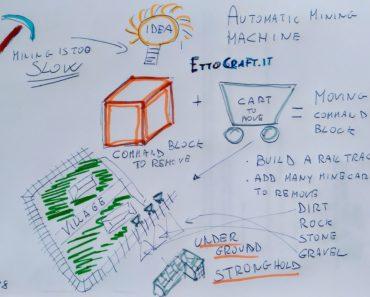 AUTOMATIC MINING
MACHINE
IDEA
MINING IS TOO
SLOW
ETTOCRAFT.IT
+
CART
TO
MOVE
=
MOVING
COMMAND
BLOCK
COMMAND BLOCK
TO REMOVE
. BUILD A RAIL TRAC
. ADD MANY MINECAR
TO REMOVE
DIRT
ROCK
STONE
GRAVEL
VILLAGE
UNDER
GROUND
STRONGHOLD